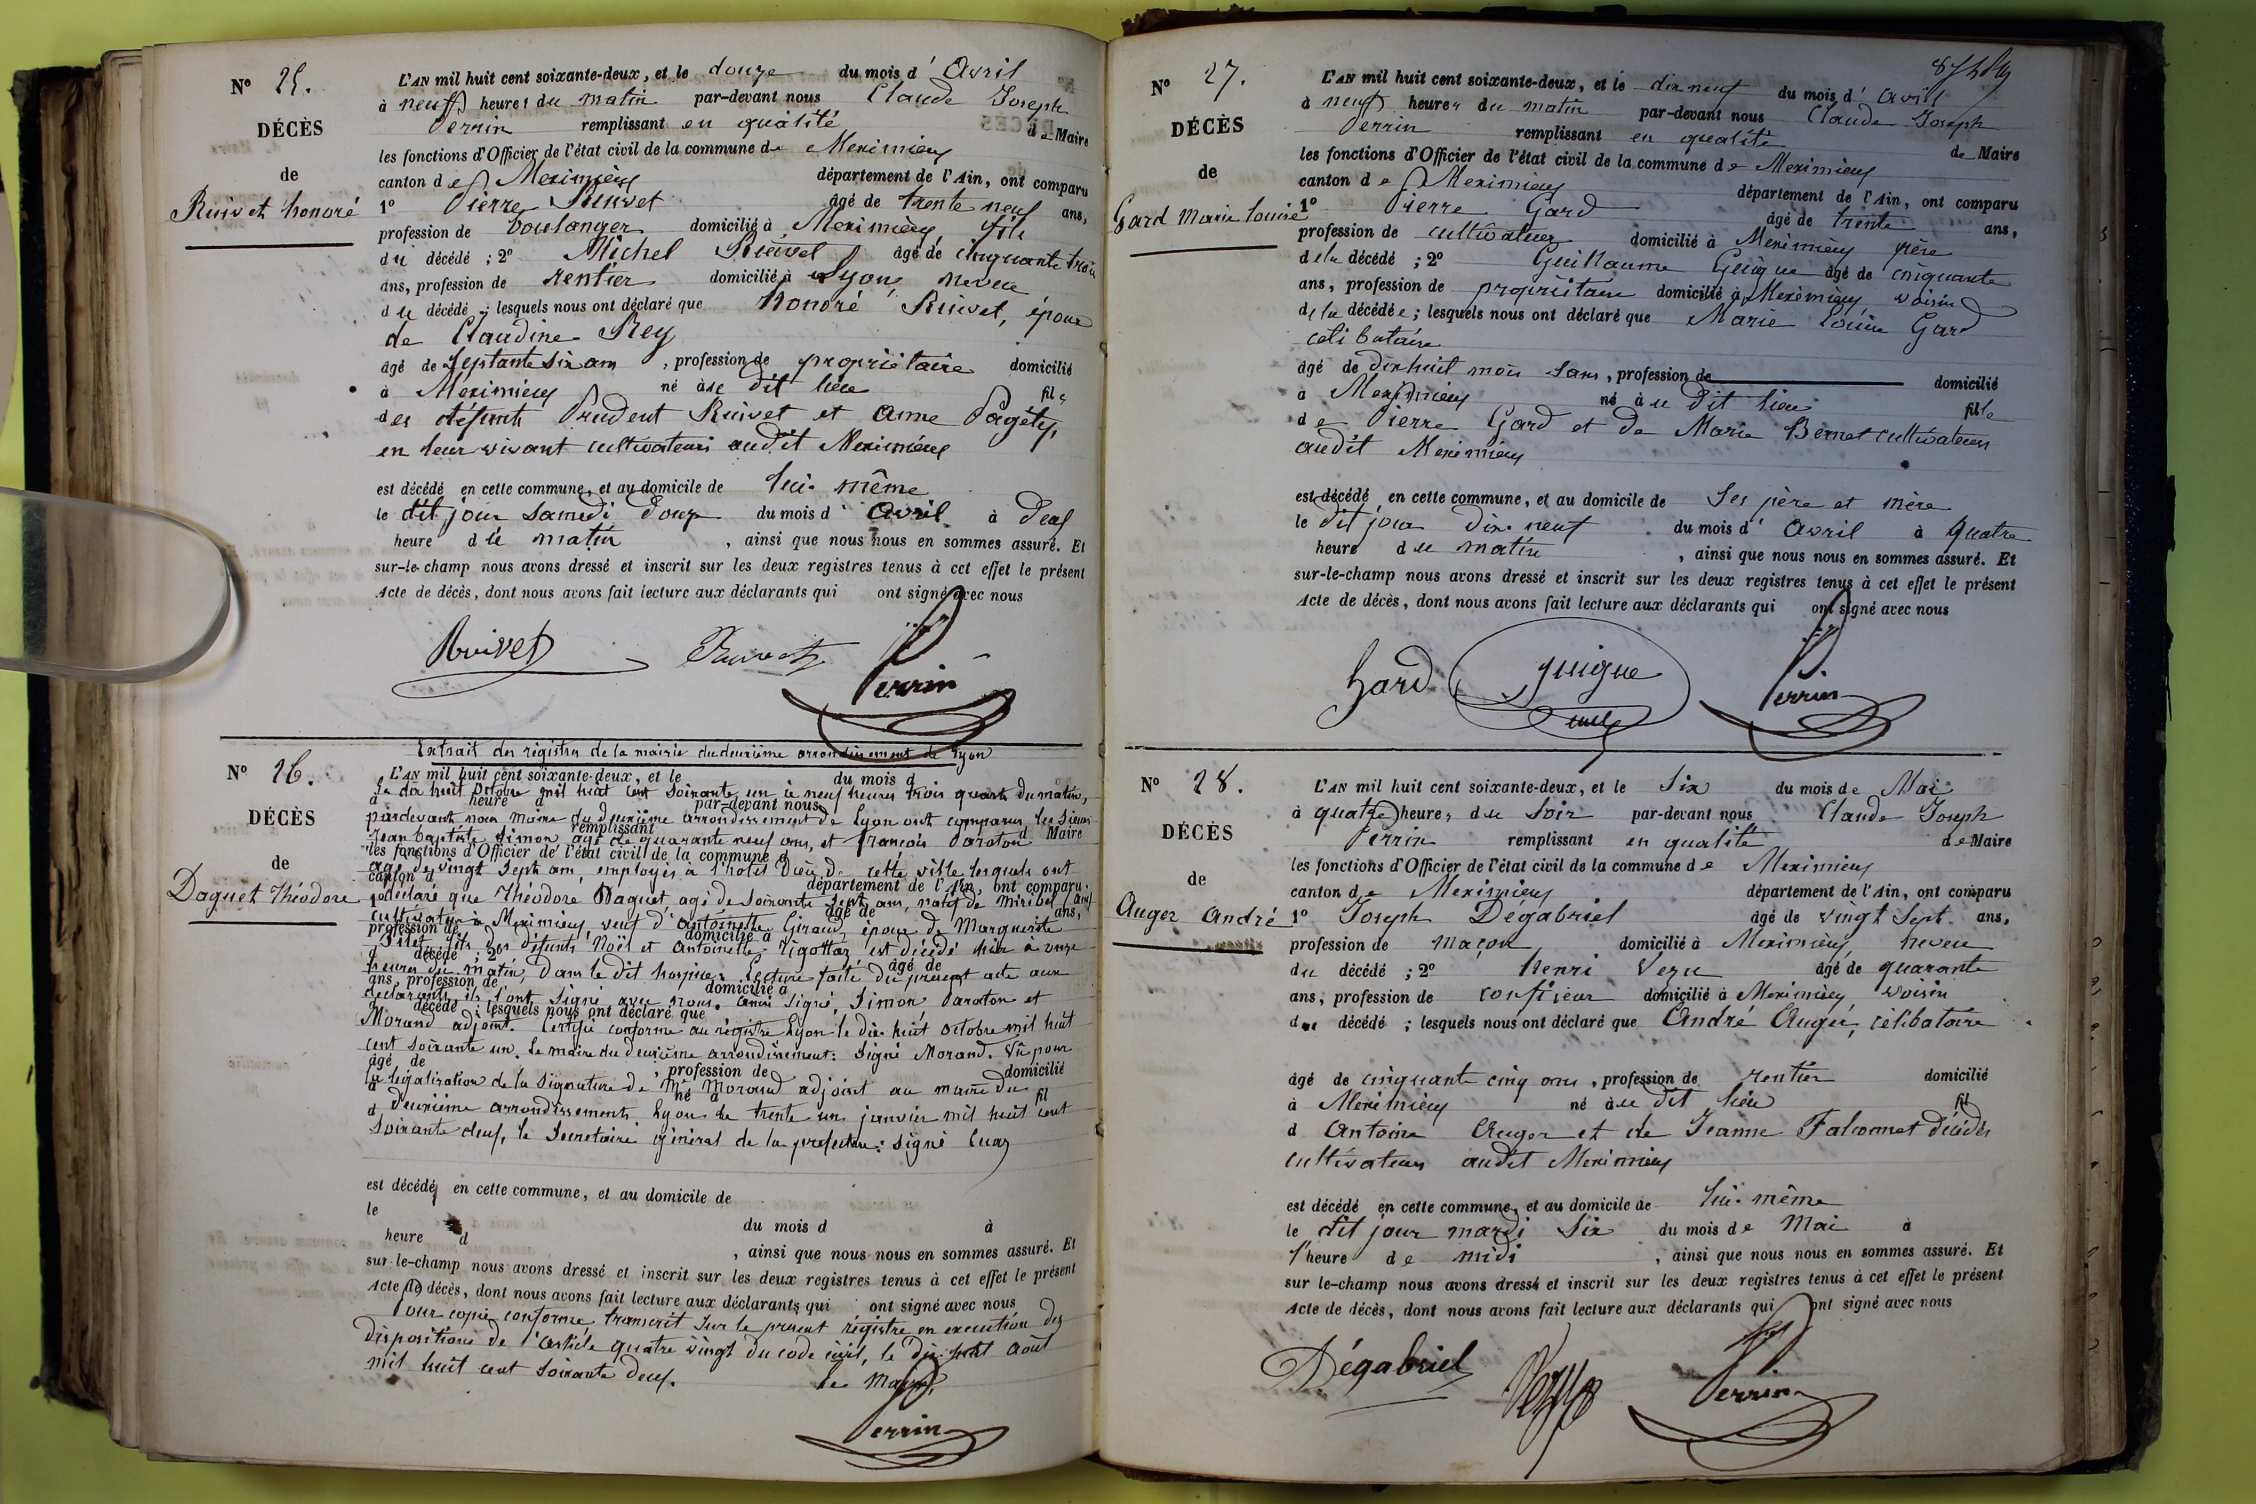 N° 25.
DÉCÈS
de
Ruivet honoré
L'AN mil huit cent soixante-deux, et le douze du mois d' Avril
à neuf heures du matin par-devant nous Claude Joseph
Perrin remplissant en qualité de Maire
les fonctions d'Officier de l'état civil de la commune de Meximieux
canton de Meximieux département de l'Ain, ont comparu
1° Pierre Ruivet âgé de trente neuf ans,
profession de boulanger domicilié à Meximieux fils
du décédé ; 2° Michel Ruivet âgé de cinquante trois
ans, profession de rentier domicilié à Lyon, neveu
du décédé ; lesquels nous ont déclaré que honoré Ruivet, époux
de Claudine Rey
âgé de Septante six ans , profession de propriétaire domicilié
à Meximieux né à ce dit lieu fils
des défunts Prudent Ruivet et anne Pagéty,
en leur vivant cultivateurs audit Meximieux
est décédé en cette commune, et au domicile de lui-même
le dit jour samedi douze du mois d' avril à deux
heure du matin , ainsi que nous nous en sommes assuré. Et
sur-le-champ nous avons dressé et inscrit sur les deux registres tenus à cet effet le présent
Acte de décès, dont nous avons fait lecture aux déclarants qui ont signé avec nous
Ruivet Perrin
N° 26.
DÉCÈS
de
Daguet Théodore
Extrait des régistres de la mairie du deuxième arrondissement de Lyon
L'AN mil huit cent soixante-deux, et le du mois d
Le dix huit Octobre mil huit cent soixante un à neuf heures trois quarts du matin,
à heure d par-devant nous
pardevant nous maire du deuxième arrondissement de Lyon ont comparu les Sieurs
remplissant d Maire
Jean baptiste Simon agé de quarante neuf ans, et françois Paraton
les fonctions d'Officier de l'état civil de la commune d
agé de vingt sept ans, employés à l'hotel Dieu de cette ville lesquels ont
canton d département de l'Ain, ont comparu
déclaré que Théodore Daguet, agé de soixante sept ans, natif de Miribel (ain)
1° âgé de ans,
cultivateur à Meximieux, veuf d'antoinette Giraud, époux de Marguerite
profession de domicilié à
Pilet, fils des défunts Noël et Antoinette Tigottaz est décédé hier à onze
d décédé ; 2° âgé de
heures du matin, dans le dit hospice. Lecture faite du présent acte aux
ans, profession de domicilié à
déclarants ils l'ont signé avec nous. ainsi signé, Simon Paraton et
d décédé ; lesquels nous ont déclaré que
Morand adjoint. Certifié conforme au régistre Lyon le dix huit octobre mil huit
cent soixante un. Le maire du deuxième arrondissement : signé Morand. Vû pour
âgé de , profession de domicilié
la légalisation de la signature de Mr Morand adjoint au maire du
à né à fil
deuxième arrondissement, Lyon le trente un janvier mil huit cent
d
soixante deux, le Secrétaire général de la préfecture : signé
est décédé en cette commune, et au domicile de
le du mois d à
heure d , ainsi que nous nous en sommes assuré. Et
sur-le-champ nous avons dressé et inscrit sur les deux registres tenus à cet effet le présent
Acte de décès, dont nous avons fait lecture aux déclarants qui ont signé avec nous
Pour copie conforme transcrit sur le présent régistre en exécution des
dispositions de l'article quatre vingt du code civil, le août
mil huit cent soixante deux. Le Maire,
Perrin
N° 27.
DÉCÈS
de
Gard Marie Louise
L'AN mil huit cent soixante-deux, et le dix neuf du mois d' avril
à neuf heures du matin par-devant nous Claude Joseph
Perrin remplissant en qualité de Maire
les fonctions d'Officier de l'état civil de la commune de Meximieux
canton de Meximieux département de l'Ain, ont comparu
1° Pierre Gard âgé de trente ans,
profession de cultivateur domicilié à Meximieux père
de la décédé ; 2° Guillaume Guigue âgé de cinquante
ans, profession de propriétaire domicilié à Meximieux voisin
de la décédée ; lesquels nous ont déclaré que Marie Louise Gard
celibataire
âgé de dix huit mois Sans , profession de domicilié
à Meximieux né à ce dit lieu fille
de Pierre Gard et de Marie Bernet cultivateurs
audit Meximieux
est décédé en cette commune, et au domicile de Ses père et mère
le dit jour dix-neuf du mois d' avril à quatre
heure du matin , ainsi que nous nous en sommes assuré. Et
sur-le-champ nous avons dressé et inscrit sur les deux registres tenus à cet effet le présent
Acte de décès, dont nous avons fait lecture aux déclarants qui ont signé avec nous
Gard guigue Perrin
N° 28.
DÉCÈS
de
Auger André
L'AN mil huit cent soixante-deux, et le Six du mois de Mai
à quatre heures du Soir par-devant nous Claude Joseph
Perrin remplissant en qualité de Maire
les fonctions d'Officier de l'état civil de la commune de Meximieux
canton de Meximieux département de l'Ain, ont comparu
1° Joseph Dégabriel âgé de vingt Sept ans,
profession de maçon domicilié à Meximieux neveu
du décédé ; 2° henri Veru âgé de quarante
ans, profession de confiseur domicilié à Meximieux, voisin
du décédé ; lesquels nous ont déclaré que André Auger, célibataire
âgé de cinquante cinq ans , profession de rentier domicilié
à Meximieux né à ce dit lieu fil
d antoine Auger et de Jeanne Falconnet décédés
cultivateurs audit Meximieux
est décédé en cette commune, et au domicile de lui-même
le dit jour mardi Six du mois de Mai à
l'heure de midi , ainsi que nous nous en sommes assuré. Et
sur le-champ nous avons dressé et inscrit sur les deux registres tenus à cet effet le présent
Acte de décès, dont nous avons fait lecture aux déclarants qui ont signé avec nous
Dégabriel Perrin